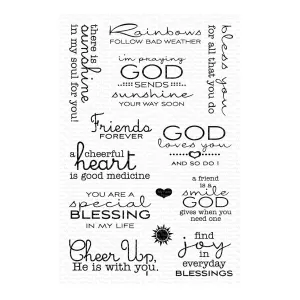 there is
sunshine
in my soul for you!
Rainbows
FOLLOW BAD WEATHER
i'm praying
GOD
SENDS
sunshine
YOUR WAY SOON
bless you
for all that you do
Friends
FOREVER
GOD
loves you
AND SO DO I
a cheerful
heart
is good medicine
a friend
is a
smile
GOD
gives when you
need one
YOU ARE A
special
BLESSING
IN MY LIFE
Cheer Up,
He is with you.
find
joy
in
everyday
BLESSINGS